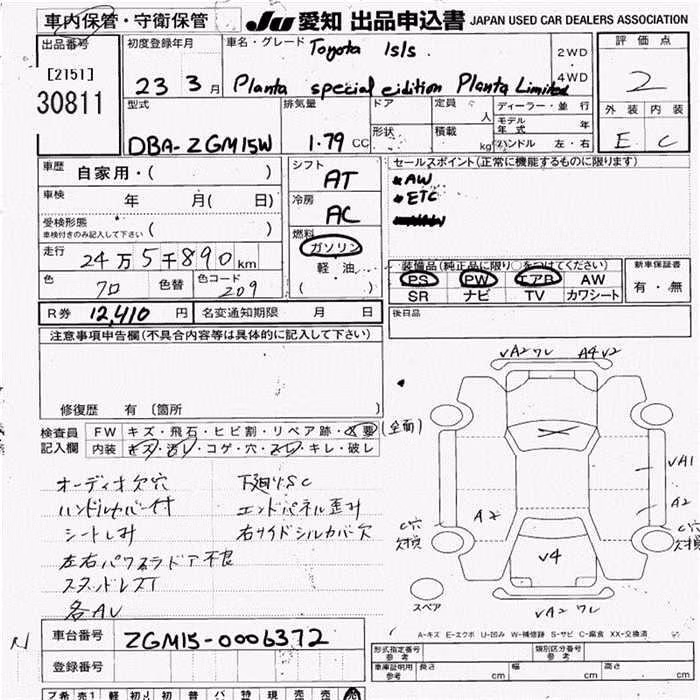 車内保管・守衛保管
JU 愛知 出品申込書 JAPAN USED CAR DEALERS ASSOCIATION
出品番号
[2151]
30811
初度登録年月
23 3月
車名・グレード
Toyota Isis
Planta special eidition Planta Limited
2WD
4WD
評価点
2
外装 内装
E C
型式
DBA-ZGM15W
排気量
1.79 CC
ドア
定員 人
形状
積載 kg
ディーラー・並行
モデル年式 年
ハンドル 左・右
車歴
自家用・( )
車検 年 月( 日)
受検形態
車検付きのみ記入して下さい ( )
走行
24万5千890km
色 クロ 色替 色コード 209
シフト
AT
冷房
AC
燃料
ガソリン
軽・油
( )
セールスポイント(正常に機能するものに限ります)
*AW
*ETC
装備品(純正品に限り○をつけてください)
PS PW エアB AW
SR ナビ TV カワシート
新車保証書
有・無
R券 12,410 円 名変通知期限 月 日
後日品
注意事項申告欄(不具合内容等は具体的に記入して下さい)
修復歴 有 〔箇所 〕
検査員 FW キズ・飛石・ヒビ割・リペア跡・×要 (全面)
記入欄 内装 キズ・汚レ・コゲ・穴・スレ・キレ・破レ
オーディオ欠穴
ハンドルカバー付
シートしみ
左右パワスラドア不良
スタッドレスT
各AU
下廻りSC
エンドパネル歪み
右サイドシルカバー欠
VA2 ワレ A4V2
VA1
A2
A2
C穴欠損
C穴欠損
V4
VA2 ワレ
スペア
A-キズ E-エクボ U-凹み W-補修跡 S-サビ C-腐食 XX-交換済
車台番号 ZGM15-0006372
登録番号
形式指定番号 参考
類別区分番号 参考
車庫証明用 参考 長さ cm 幅 cm 高さ cm